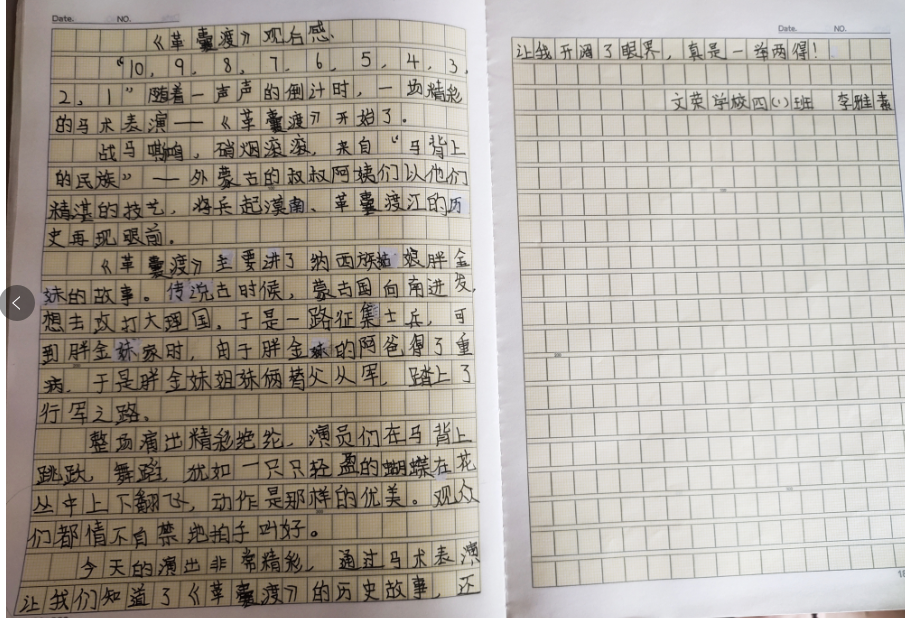 Date.
NO.
《革囊渡》观后感、
“10，9，8，7，6，5，4，3，
2，1”随着一声声的倒计时，一场精彩
的马术表演——《革囊渡》开始了。
战马嘶鸣，硝烟滚滚，来自“马背上
的民族”——外蒙古的叔叔阿姨们以他们
精湛的技艺，将兵起漠南、革囊渡江的历
史再现眼前。
《革囊渡》主要讲了纳西族姑娘胖金
妹的故事。传说古时候，蒙古国向南进发，
想去攻打大理国，于是一路征集士兵，可
到胖金妹家时，由于胖金妹的阿爸得了重
病，于是胖金妹姐妹俩替父从军，踏上了
行军之路、
整场演出精彩绝纶，演员们在马背上
跳跃，舞蹈，犹如一只只轻盈的蝴蝶在花
丛中上下翻飞，动作是那样的优美。观众
们都情不自禁地拍手叫好。
今天的演出非常精彩，通过马术表演
让我们知道了《革囊渡》的历史故事，还
Date.
NO.
让我开阔了眼界，真是一举两得！
文荣学校四（1）班 李雅